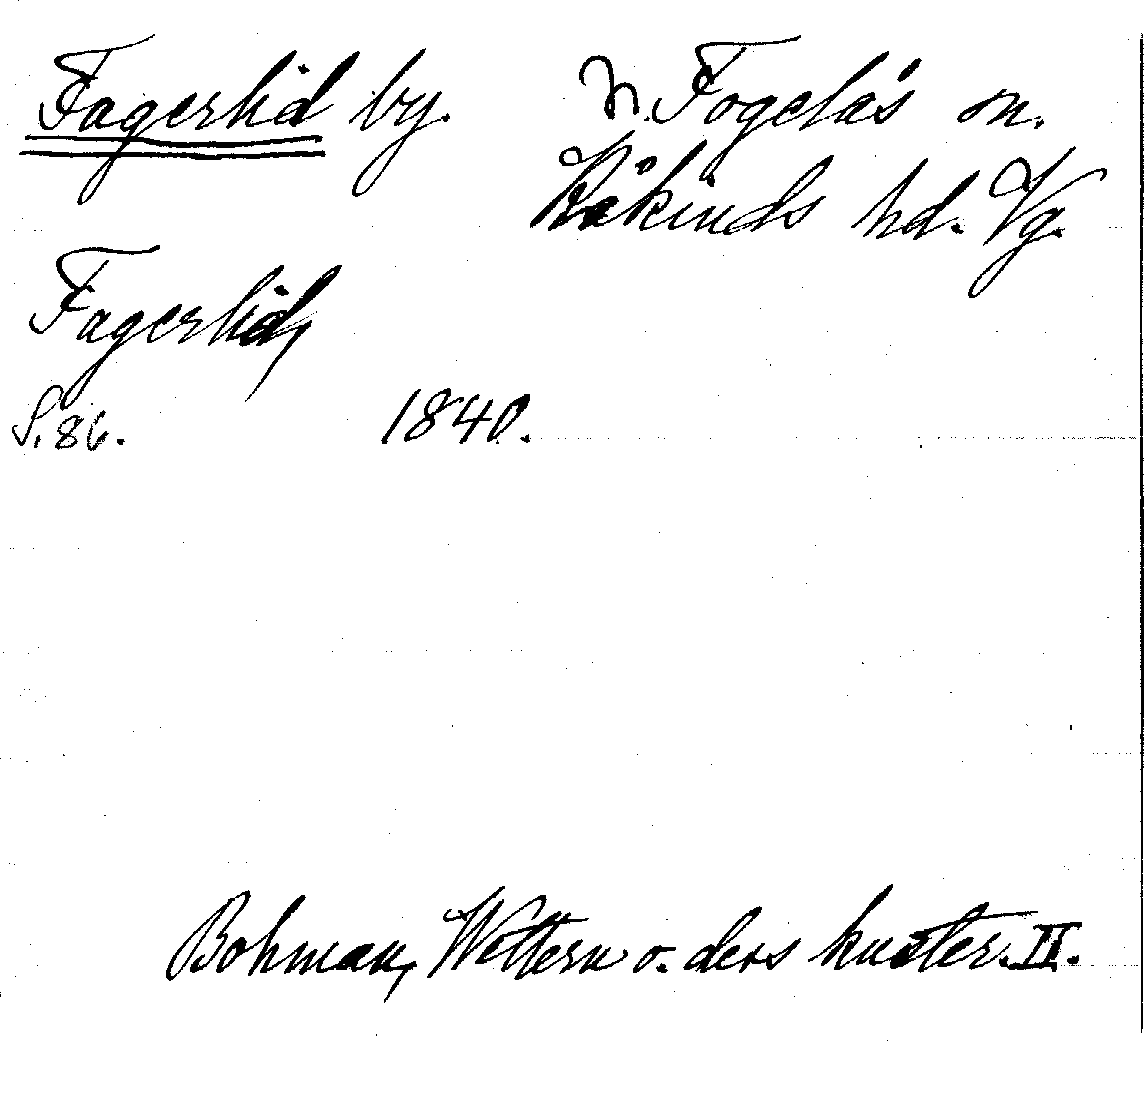 Fagerlid by. N. Fogelås sn.
Kåkinds hd. Vg.
Fagerlid,
S. 86. 1840.
Bohman, Wettern o. dess kuster. II.